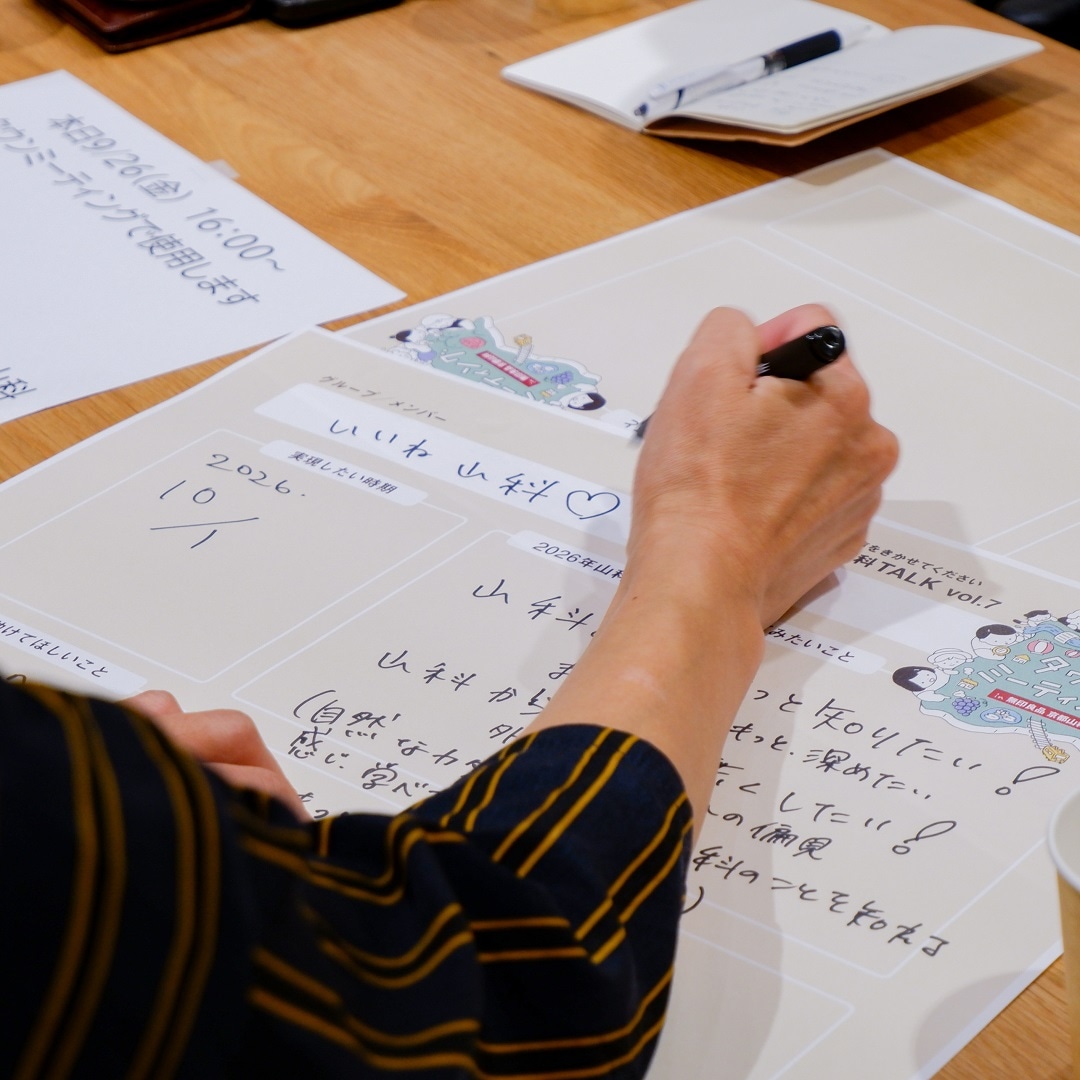 本日9/26(金) 16:00~
タウンミーティングで使用します
山科
グループ/メンバー
いいね 山科♡
実現したい時期
2026.
10/1
をきかせてください
科TALK vol.7
2026年山科
みたいこと
山科
っと知りたい!
山科から
もっと深めたい
くしたい!
(自然な
の偏見
感じ 学べ
科のことを知れる
)
けてほしいこと
タウ
ミーティ
in 無印良品 京都山科